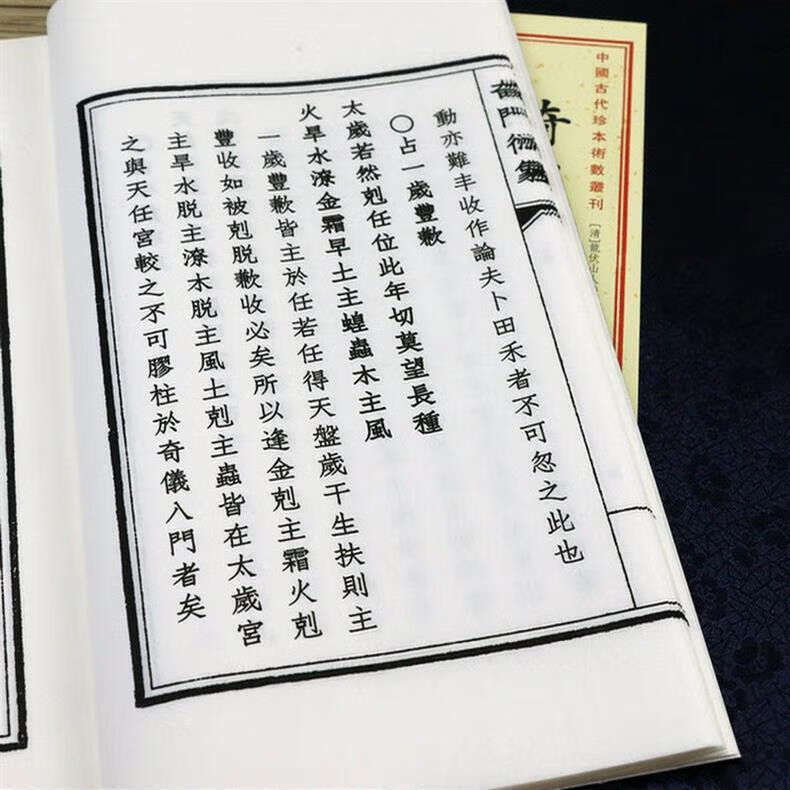 動亦難丰收作論夫卜田禾者不可忽之此也
〇占一歲豐歉
太歲若然剋任位此年切莫望長種
火旱水潦金霜早土主蝗蟲木主風
一歲豐歉皆主於任若任得天盤歲干生扶則主
豐收如被剋脫歉收必矣所以逢金剋主霜火剋
主旱水脫主潦木脫主風土剋主蟲皆在太歲宮
之與天任宮較之不可膠柱於奇儀入門者矣
中國古代珍本術數叢刊
[清]龍伏山人